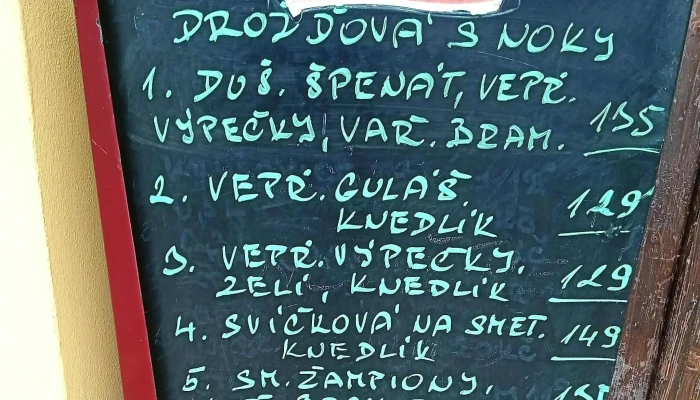 DROŽĎOVÁ S NOKY
1. DUŠ. ŠPENÁT, VEPŘ.
VÝPEČKY, VAŘ. BRAM. 135
2. VEPŘ. GULÁŠ.
KNEDLÍK 129
3. VEPŘ. VÝPEČKY.
ZELÍ, KNEDLÍK 129
4. SVÍČKOVÁ NA SMET.
KNEDLÍK 149
5. SM. ŽAMPIONY,